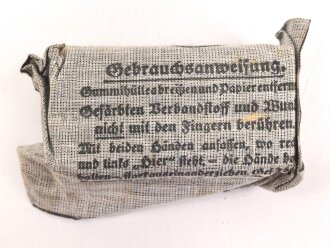 Gebrauchsanweisung.
Gummihülle abreißen und Papier entfern
Gefärbten Verbandstoff und Wun
nicht mit den Fingern berühren
Mit beiden Händen anfassen, wo re
und links „Hier" steht – die Hände ho